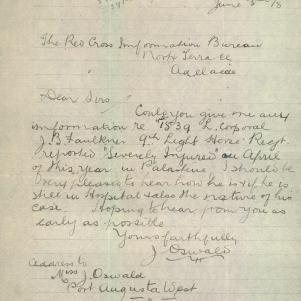 June 8th /18
The Red Cross Imformation Bureau
North Terrace
Adelaide
Dear Sirs
Could you give me any
imformation re "1539 L. Corporal
J. B. Faulkner 9th Light Horse Regt.
reported "Severely Injured" in April
of this year in Palastine I should be
very pleased to hear how he is & if he is
still in Hospital & also the nature of his
case. Hoping to hear from you as
early as possible
Yours faithfully
J. Oswald
address to
Miss J. Oswald
Port Augusta West